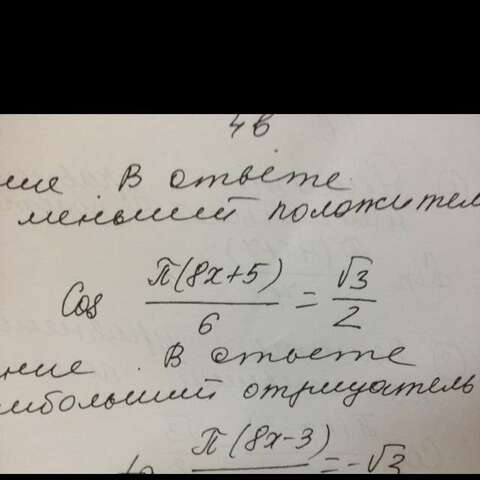 4в
ние В ответе
меньший положител
Cos π(8x+5)/6 = √3/2
ние. В ответе
ибольший отрицатель
π(8x-3) = -√3